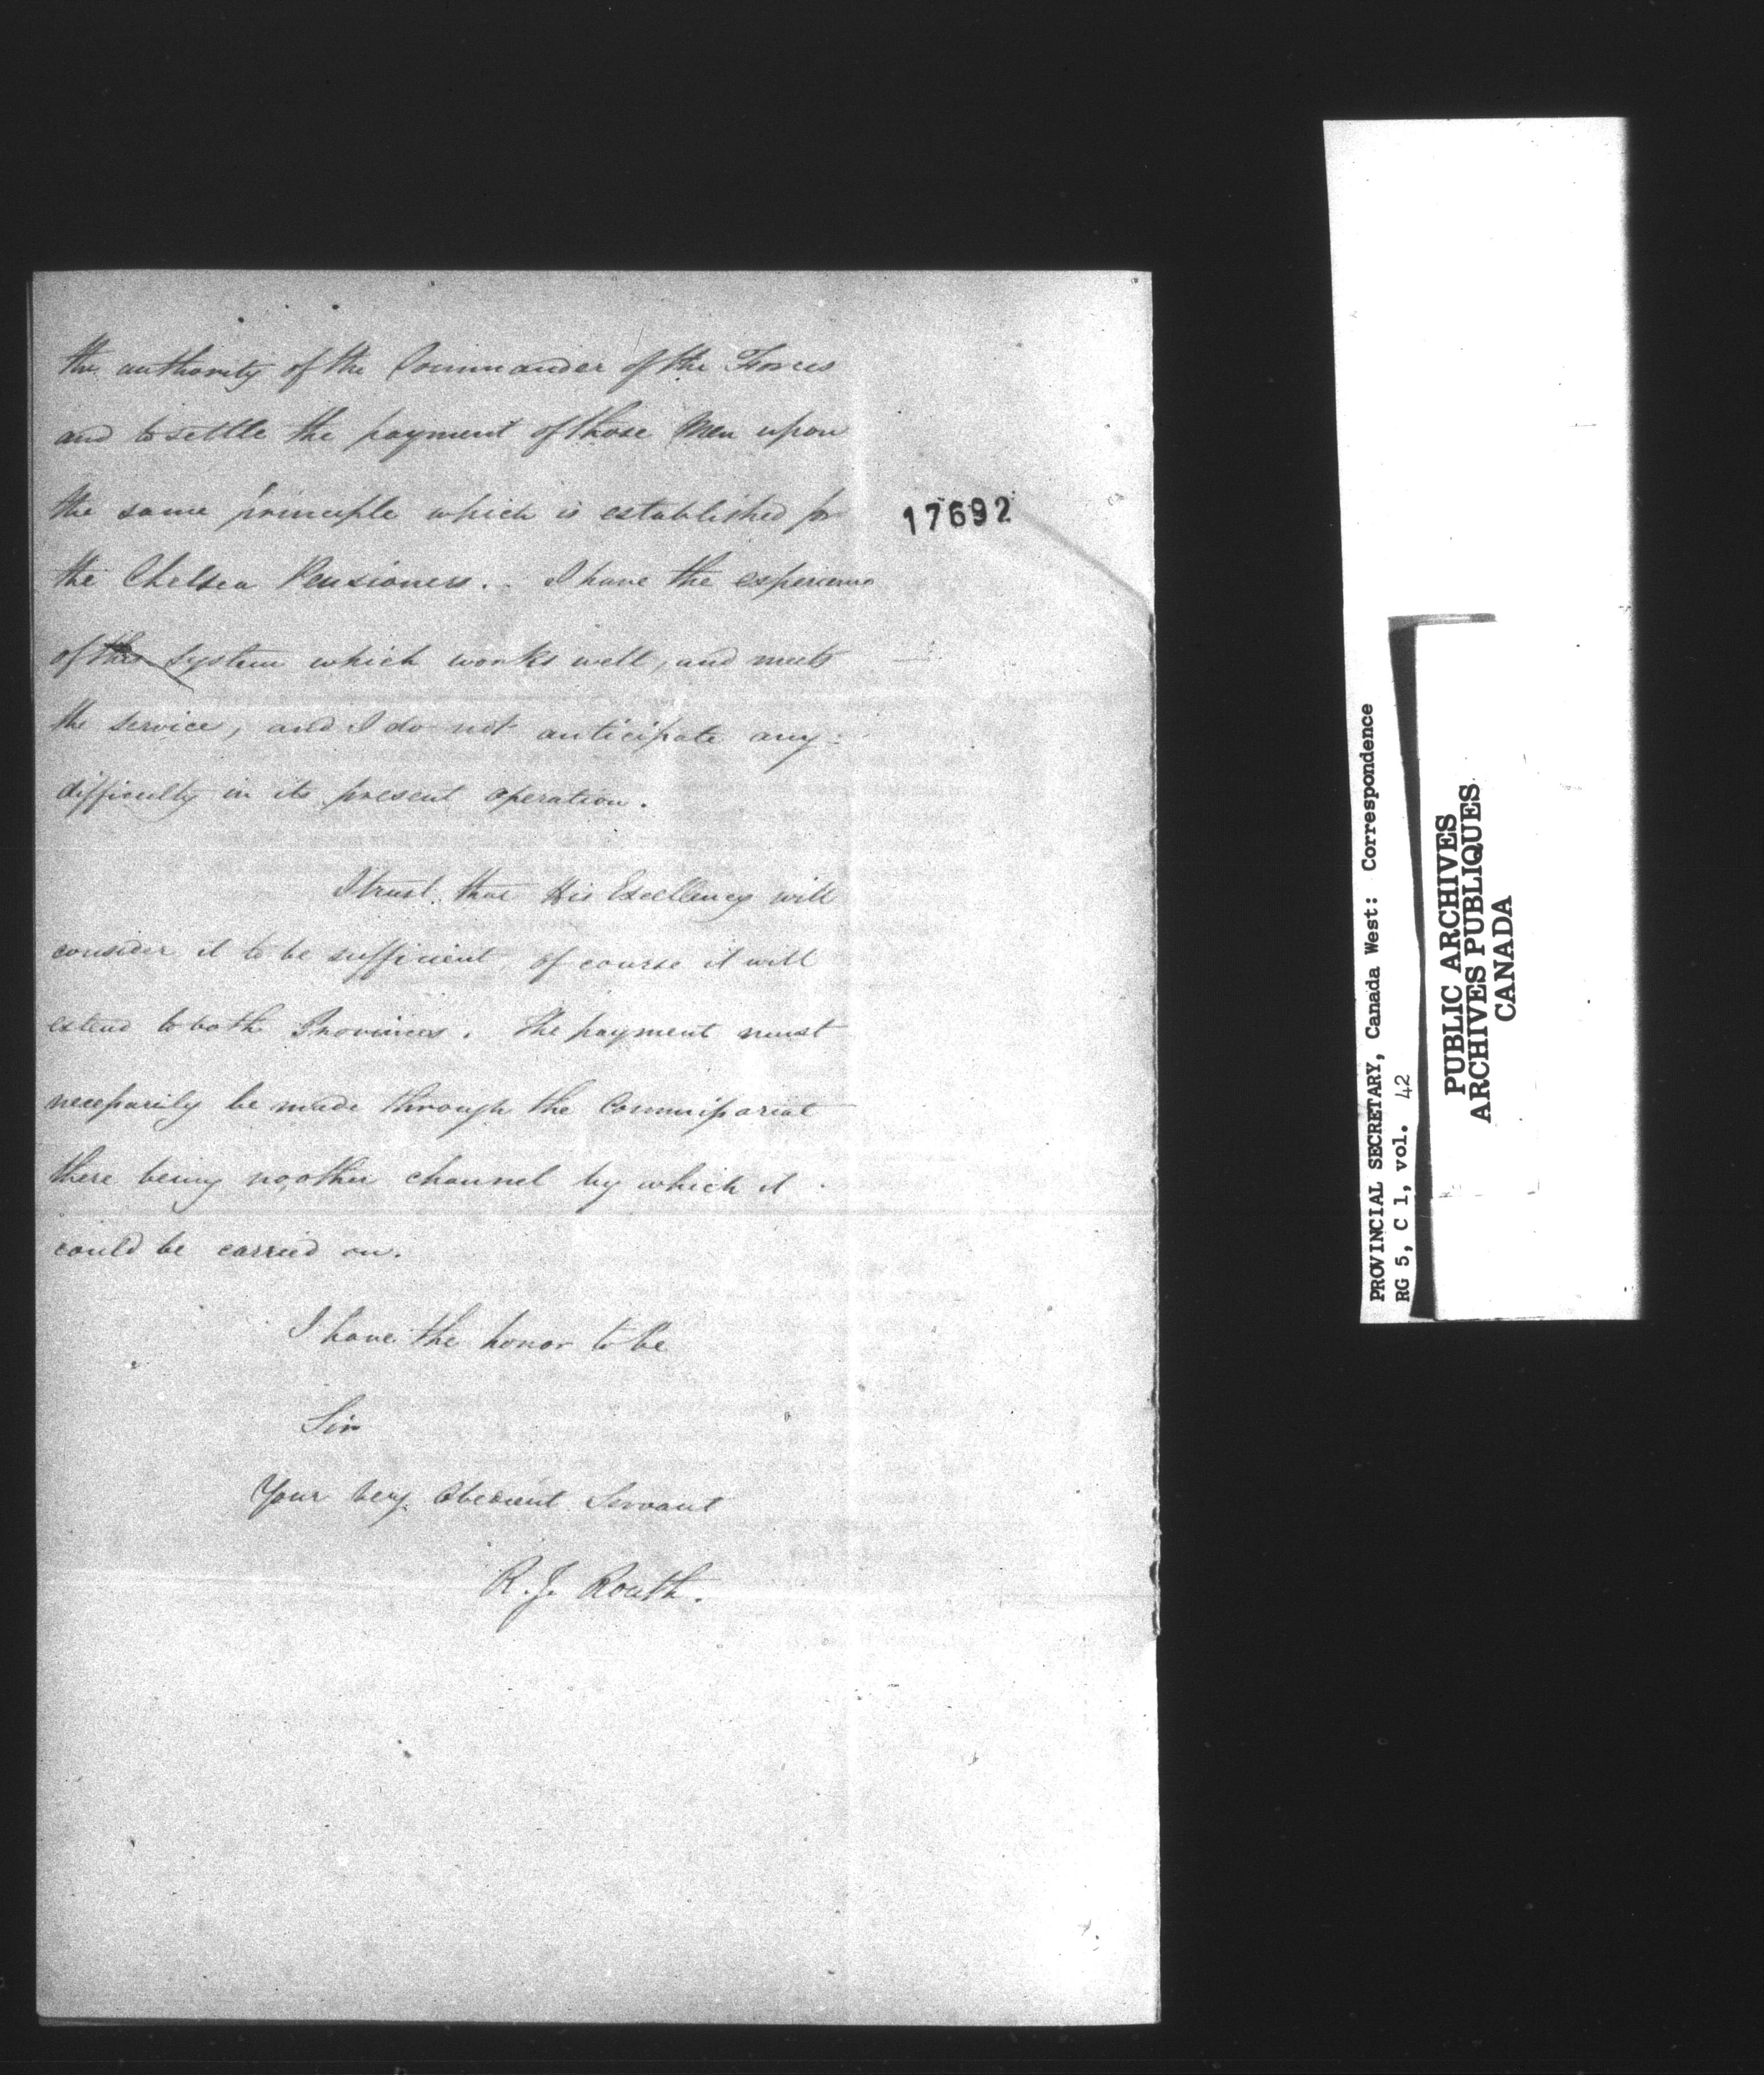 the authority of the Commander of the Forces
and to settle the payment of those Men upon
the same principle which is established for
17692
the Chelsea Pensioners. I have the experience
of this system which works well, and meets
the service, and I do not anticipate any
difficulty in its present operation.
I trust that His Excellency will
consider it to be sufficient, of course it will
extend to both Provinces. The payment must
necessarily be made through the Commissariat
there being no other channel by which it
could be carried on.
I have the honor to be
Sir
Your very Obedient Servant
R. J. Routh.
PROVINCIAL SECRETARY, Canada West: Correspondence
RG 5, C 1, vol. 42
PUBLIC ARCHIVES
ARCHIVES PUBLIQUES
CANADA